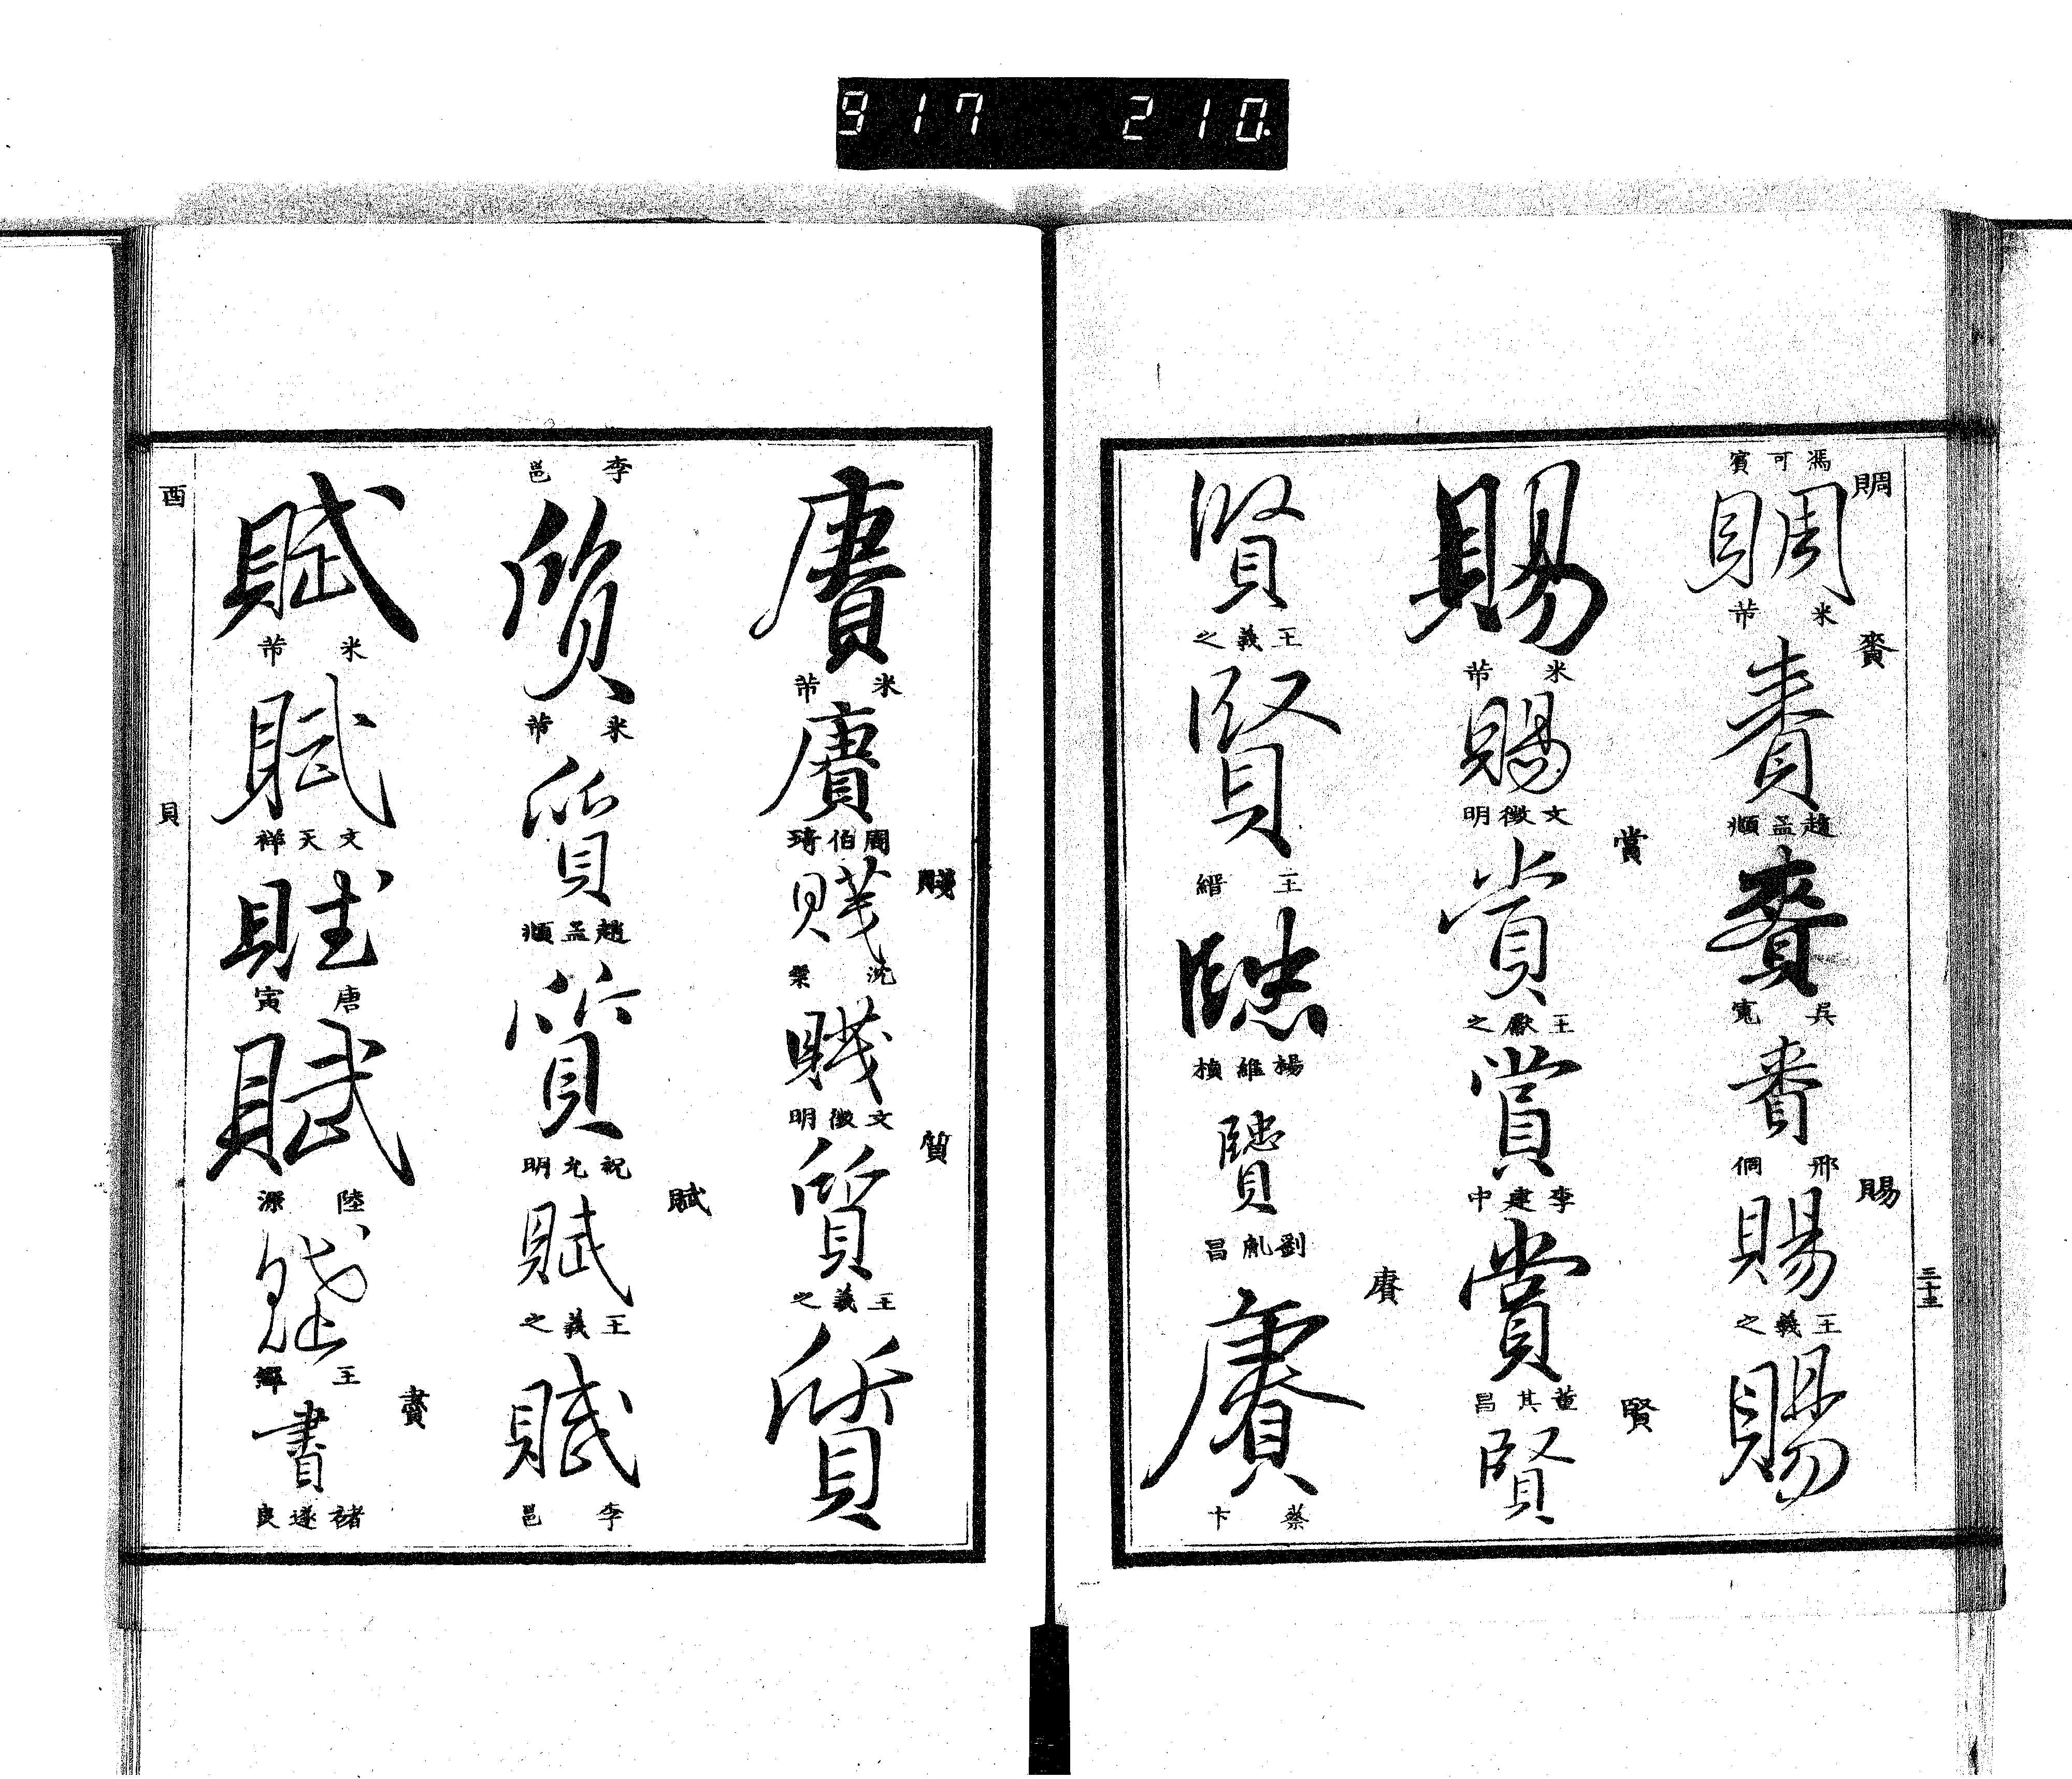 917 210.
三十三
賙
馮可賓
賙
米芾
賚
賚
趙孟頫
賚
吳寬
賚
邢侗
賜
賜
王羲之
賜
賜
米芾
賜
文徵明
賞
賞
王獻之
賞
李建中
賞
董其昌
賢
賢
賢
王羲之
賢
王縉
賢
楊維楨
賢
劉胤昌
賡
賡
蔡卞
賡
米芾
賡
周伯琦
賤
賤
沈粲
賤
文徵明
質
質
王羲之
質
李邕
質
米芾
質
趙孟頫
質
祝允明
賦
賦
王羲之
賦
李邕
賦
米芾
賦
文天祥
賦
唐寅
賦
陸深
賦
王鐸
賮
褚遂良
酉
貝